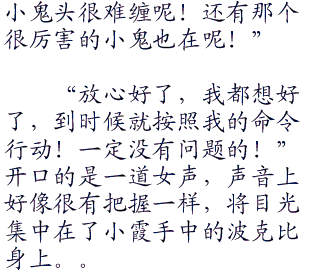 小鬼头很难缠呢！还有那个
很厉害的小鬼也在呢！”
“放心好了，我都想好
了，到时候就按照我的命令
行动！一定没有问题的！”
开口的是一道女声，声音上
好像很有把握一样，将目光
集中在了小霞手中的波克比
身上。。